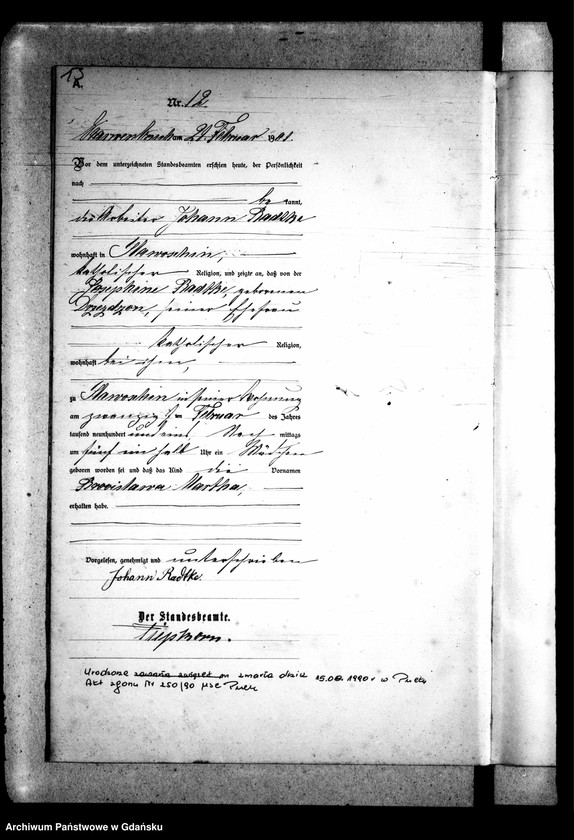 A.
Nr. 12.
am 21. Februar 1901.
Vor dem unterzeichneten Standesbeamten erschien heute, der Persönlichkeit
nach
be kannt,
der Arbeiter Johann Radtke
wohnhaft in Slawoschin,
katholischer Religion, und zeigte an, daß von der
Josephine Radtke, geborenen
seiner Ehefrau
katholischer Religion,
wohnhaft bei ihm,
zu Slawoschin in seiner Wohnung
am zwanzigsten Februar des Jahres
tausend neunhundert und eins Nach mittags
um fünf ein halb Uhr ein Mädchen
geboren worden sei und daß das Kind die Vornamen
Bronislawa Martha,
erhalten habe.
Vorgelesen, genehmigt und unterschrieben
Johann Radtke.
Der Standesbeamte.
Urodzona zmarła dnia 15.08.1990 r w Pucku
Akt zgonu Nr 250/90 USC Puck
Archiwum Państwowe w Gdańsku